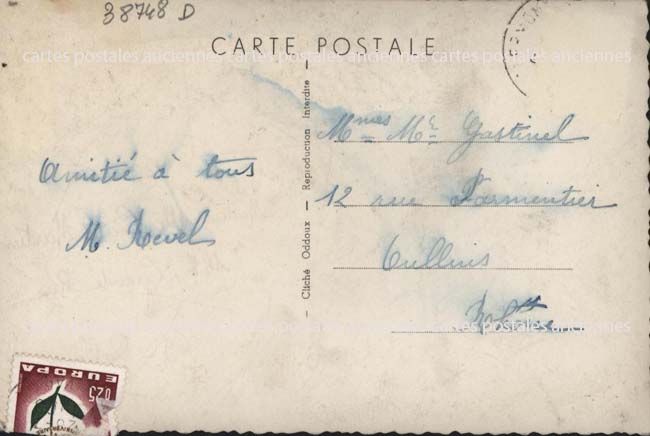 38748 D
CARTE POSTALE
cartes postales anciennes cartes postales anciennes cartes postales anciennes
Amitié à tous
M. Revel
Cliché Oddoux — Reproduction Interdite —
Mmes Mr Gastinel
12 rue Parmentier
Oullins
cartes postales anciennes cartes postales anciennes cartes postales anciennes
EUROPA
0,25